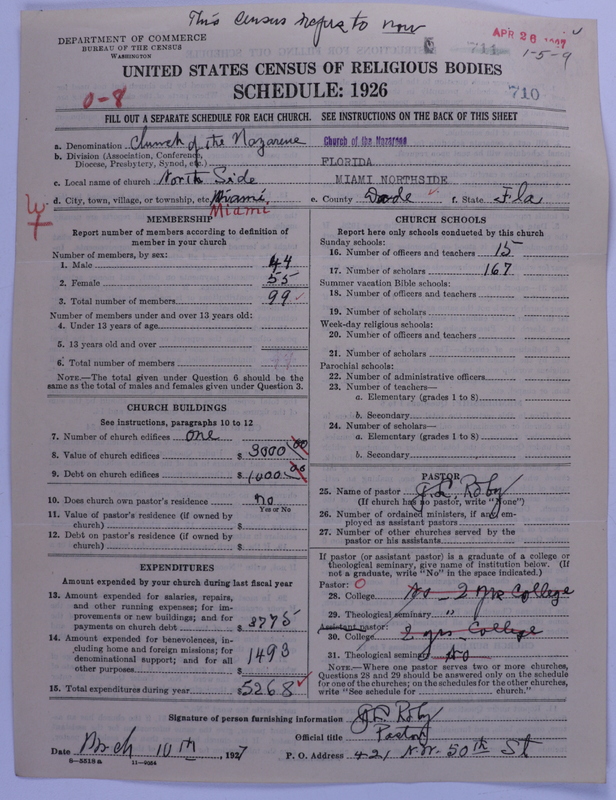 This census refers to now
DEPARTMENT OF COMMERCE
BUREAU OF THE CENSUS
WASHINGTON
711
APR 26 1927
1-5-9
UNITED STATES CENSUS OF RELIGIOUS BODIES
0-8
SCHEDULE: 1926
710
FILL OUT A SEPARATE SCHEDULE FOR EACH CHURCH. SEE INSTRUCTIONS ON THE BACK OF THIS SHEET
a. Denomination Church of the Nazarene Church of the Nazarene
b. Division (Association, Conference, Diocese, Presbytery, Synod, etc.) FLORIDA
c. Local name of church North Side MIAMI NORTHSIDE
d. City, town, village, or township, etc. Miami, e. County Dade f. State Fla
Miami
MEMBERSHIP
Report number of members according to definition of
member in your church
Number of members, by sex:
1. Male 44
2. Female 55
3. Total number of members 99
Number of members under and over 13 years old:
4. Under 13 years of age
5. 13 years old and over
6. Total number of members
NOTE.—The total given under Question 6 should be the
same as the total of males and females given under Question 3.
CHURCH BUILDINGS
See instructions, paragraphs 10 to 12
7. Number of church edifices one
8. Value of church edifices $ 9000 00
9. Debt on church edifices $ 1000.00
10. Does church own pastor's residence no
Yes or No
11. Value of pastor's residence (if owned by
church) $
12. Debt on pastor's residence (if owned by
church) $
EXPENDITURES
Amount expended by your church during last fiscal year
13. Amount expended for salaries, repairs,
and other running expenses; for im-
provements or new buildings; and for
payments on church debt $ 3775
14. Amount expended for benevolences, in-
cluding home and foreign missions; for
denominational support; and for all
other purposes $ 1493
15. Total expenditures during year $ 5268
CHURCH SCHOOLS
Report here only schools conducted by this church
Sunday schools:
16. Number of officers and teachers 15
17. Number of scholars 167
Summer vacation Bible schools:
18. Number of officers and teachers
19. Number of scholars
Week-day religious schools:
20. Number of officers and teachers
21. Number of scholars
Parochial schools:
22. Number of administrative officers
23. Number of teachers—
a. Elementary (grades 1 to 8)
b. Secondary
24. Number of scholars—
a. Elementary (grades 1 to 8)
b. Secondary
PASTOR
25. Name of pastor J. E. Roby
(If church has no pastor, write "None")
26. Number of ordained ministers, if any em-
ployed as assistant pastors
27. Number of other churches served by the
pastor or his assistants
If pastor (or assistant pastor) is a graduate of a college or
theological seminary, give name of institution below. (If
not a graduate, write "No" in the space indicated.)
Pastor: 0
28. College No - 2 yrs College
29. Theological seminary "
Assistant pastor:
30. College 2 yrs College
31. Theological seminary No
NOTE.—Where one pastor serves two or more churches,
Questions 28 and 29 should be answered only on the schedule
for one of the churches; on the schedules for the other churches,
write "See schedule for church."
Signature of person furnishing information J. E. Roby
Official title Pastor
Date Mch 10th, 1927 P. O. Address 421 N.W. 50th St
8-5518a 11-9064